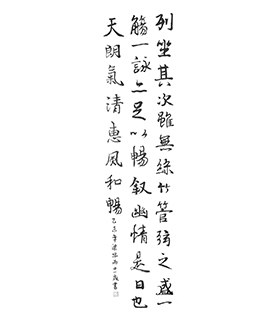 列坐其次雖無絲竹管弦之盛一
觴一詠亦足以暢叙幽情是日也
天朗氣清惠風和暢